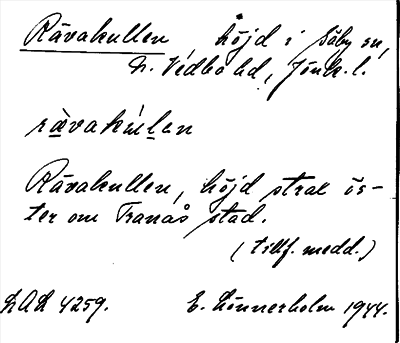 Rävakullen höjd i Säby sn,
N. Vedbo hd, Jönk. l.
rävakulen
Rävakullen, höjd strax ös-
ter om Tranås stad.
(tillf. medd.)
LAL 4259. E. Lönnerholm 1944.